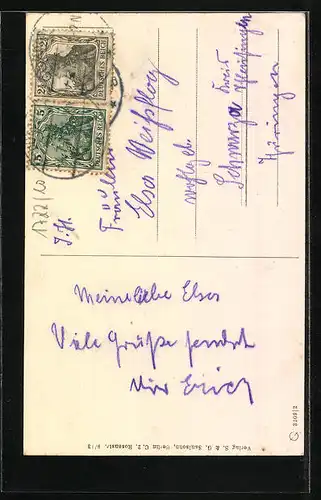 I. H.
Fräulein
Elsa Weißflog
Schwarza Kreis Schleusingen
Thüringen
1722/10
Meine liebe Elsa
Viele Grüße sendet
Dir Erich
Verlag S. & G. Saulsohn, Berlin C. 2, Rosenstr. 9/13
DEUTSCHES REICH